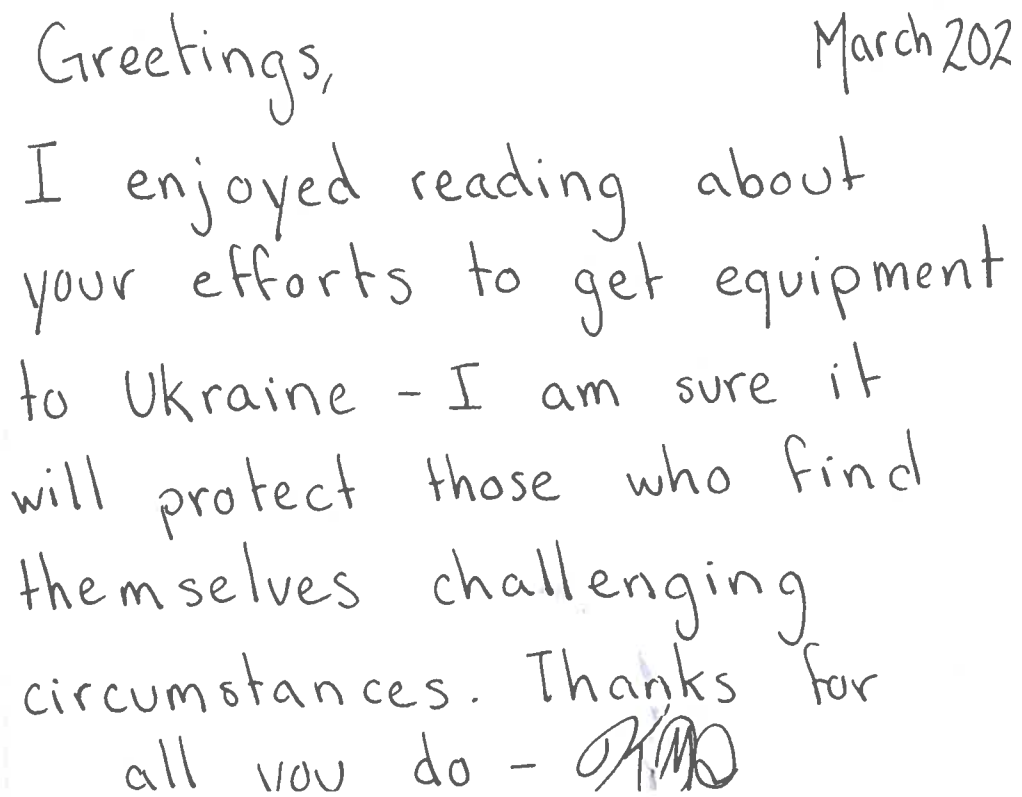 Greetings, March 202
I enjoyed reading about
your efforts to get equipment
to Ukraine - I am sure it
will protect those who find
themselves challenging
circumstances. Thanks for
all you do -